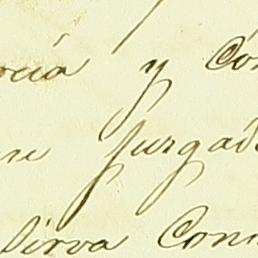 rcia y Con
se Juzgad
Sirva Com